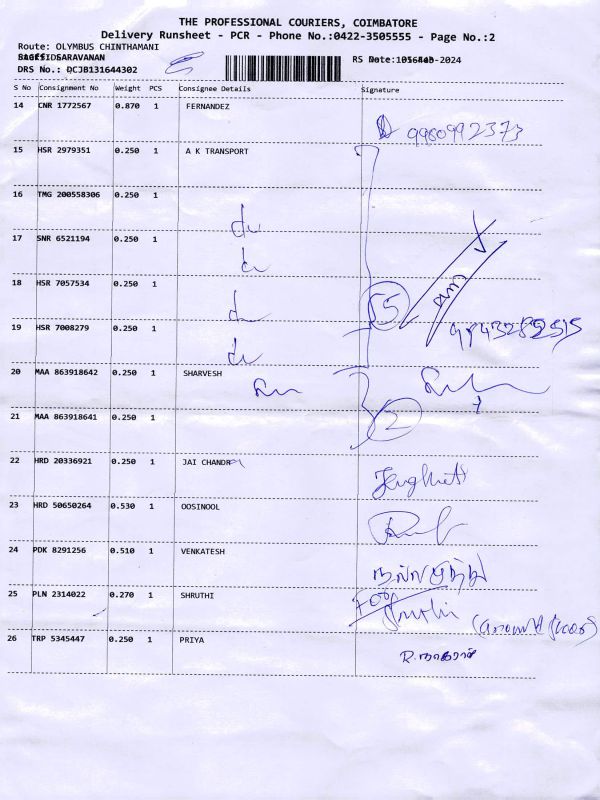 THE PROFESSIONAL COURIERS, COIMBATORE
Delivery Runsheet - PCR - Phone No.:0422-3505555 - Page No.:2
Route: OLYMBUS CHINTHAMANI
DRS No.: DCJ8131644302
S No Consignment No Weight PCS Consignee Details Signature
14 CNR 1772567 0.870 1 FERNANDEZ
9980992373
15 HSR 2979351 0.250 1 A K TRANSPORT
16 TMG 200558306 0.250 1
du
17 SNR 6521194 0.250 1
du
18 HSR 7057534 0.250 1
du
5
19 HSR 7008279 0.250 1
du
20 MAA 863918642 0.250 1 SHARVESH
21 MAA 863918641 0.250 1
2
22 HRD 20336921 0.250 1 JAI CHANDRA
23 HRD 50650264 0.530 1 OOSINOOL
24 PDK 8291256 0.510 1 VENKATESH
25 PLN 2314022 0.270 1 SHRUTHI
Sruthi
26 TRP 5345447 0.250 1 PRIYA